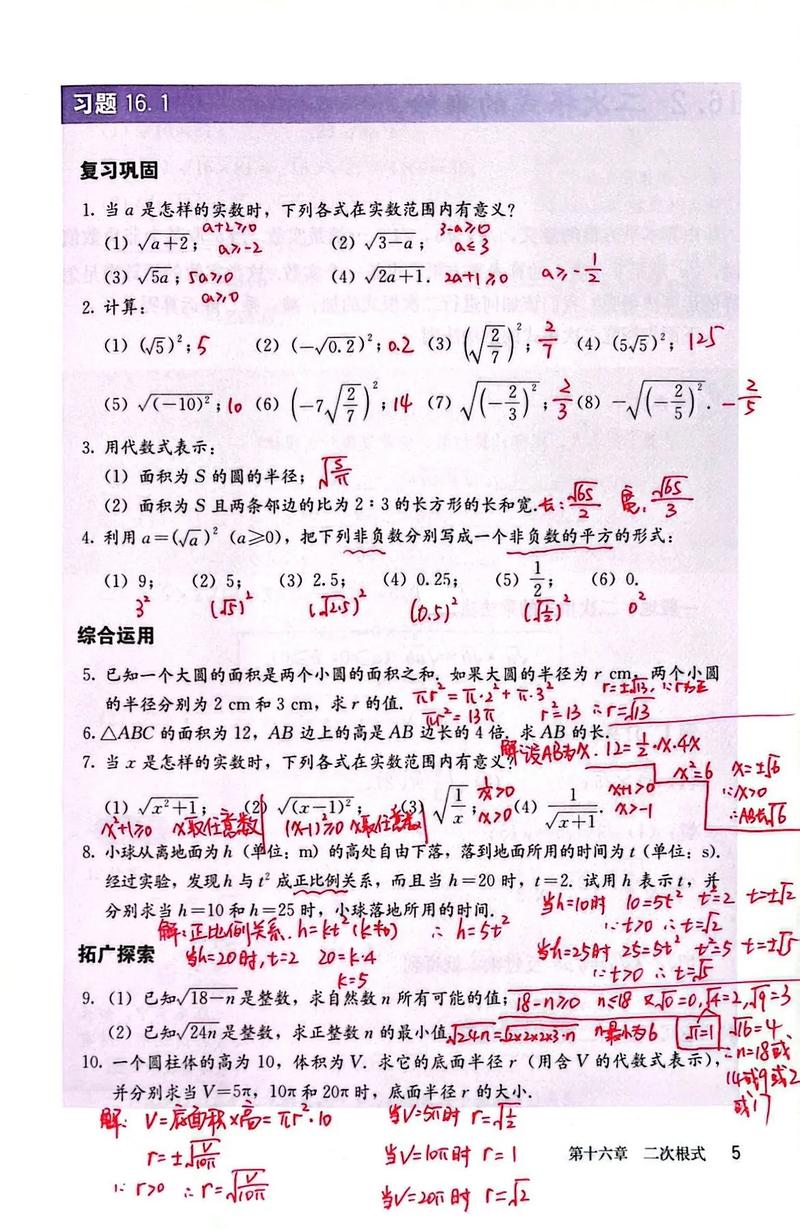 习题 16.1
复习巩固
1. 当 a 是怎样的实数时，下列各式在实数范围内有意义？
(1) √(a+2)； a+2≥0 a≥-2 (2) √(3-a)； 3-a≥0 a≤3
(3) √(5a)； 5a≥0 a≥0 (4) √(2a+1)． 2a+1≥0 a≥-1/2
2. 计算：
(1) (√5)²；5 (2) (-√0.2)²；0.2 (3) (√(2/7))²；2/7 (4) (5√5)²；125
(5) √((-10)²)；10 (6) (-7√(2/7))²；14 (7) √((-2/3)²)；2/3 (8) -√((-2/5)²)．-2/5
3. 用代数式表示：
(1) 面积为 S 的圆的半径； √(S/π)
(2) 面积为 S 且两条邻边的比为 2：3 的长方形的长和宽. 长：√(6S)/2 宽：√(6S)/3
4. 利用 a=(√a)² (a≥0)，把下列非负数分别写成一个非负数的平方的形式：
(1) 9； (2) 5； (3) 2.5； (4) 0.25； (5) 1/2； (6) 0.
3² (√5)² (√2.5)² (0.5)² (√(1/2))² 0²
综合运用
5. 已知一个大圆的面积是两个小圆的面积之和. 如果大圆的半径为 r cm，两个小圆
的半径分别为 2 cm 和 3 cm，求 r 的值. πr²=π·2²+π·3² r=±√13. ∵r为正
πr²=13π r²=13 ∴r=√13
6. △ABC 的面积为 12，AB 边上的高是 AB 边长的 4 倍. 求 AB 的长.
解：设AB为x. 12=1/2·x·4x
7. 当 x 是怎样的实数时，下列各式在实数范围内有意义？
x²=6 x=±√6
∵x>0
∴AB长√6
(1) √(x²+1)； (2) √((x-1)²)； (3) √(1/x)； 1/x>0 x>0 (4) 1/√(x+1)． x+1>0 x>-1
x²+1≥0 x取任意数 (x-1)²≥0 x取任意数
8. 小球从离地面为 h (单位：m) 的高处自由下落，落到地面所用的时间为 t (单位：s).
经过实验，发现 h 与 t² 成正比例关系，而且当 h=20 时，t=2. 试用 h 表示 t，并
分别求当 h=10 和 h=25 时，小球落地所用的时间.
当h=10时 10=5t² t²=2 t=±√2
∵t>0 ∴t=√2
解：正比例关系. h=kt²(k≠0) ∴h=5t²
当h=20时,t=2 20=k·4
k=5
当h=25时 25=5t² t²=5 t=±√5
∵t>0 ∴t=√5
拓广探索
9. (1) 已知√(18-n)是整数，求自然数 n 所有可能的值； 18-n≥0 n≤18 又√0=0,√4=2,√9=3
(2) 已知√(24n)是整数，求正整数 n 的最小值 √(24n)=√(2×2×2×3·n) n最小为6 √1=1 √16=4
∴n=18或
14或9或2
或17
10. 一个圆柱体的高为 10，体积为 V. 求它的底面半径 r (用含 V 的代数式表示)，
并分别求当 V=5π，10π 和 20π 时，底面半径 r 的大小.
解：V=底面积×高=πr²·10 当V=5π时 r=√(1/2)
r=±√(V/10π) 当V=10π时 r=1
∵r>0 ∴r=√(V/10π) 当V=20π时 r=√2
第十六章 二次根式 5